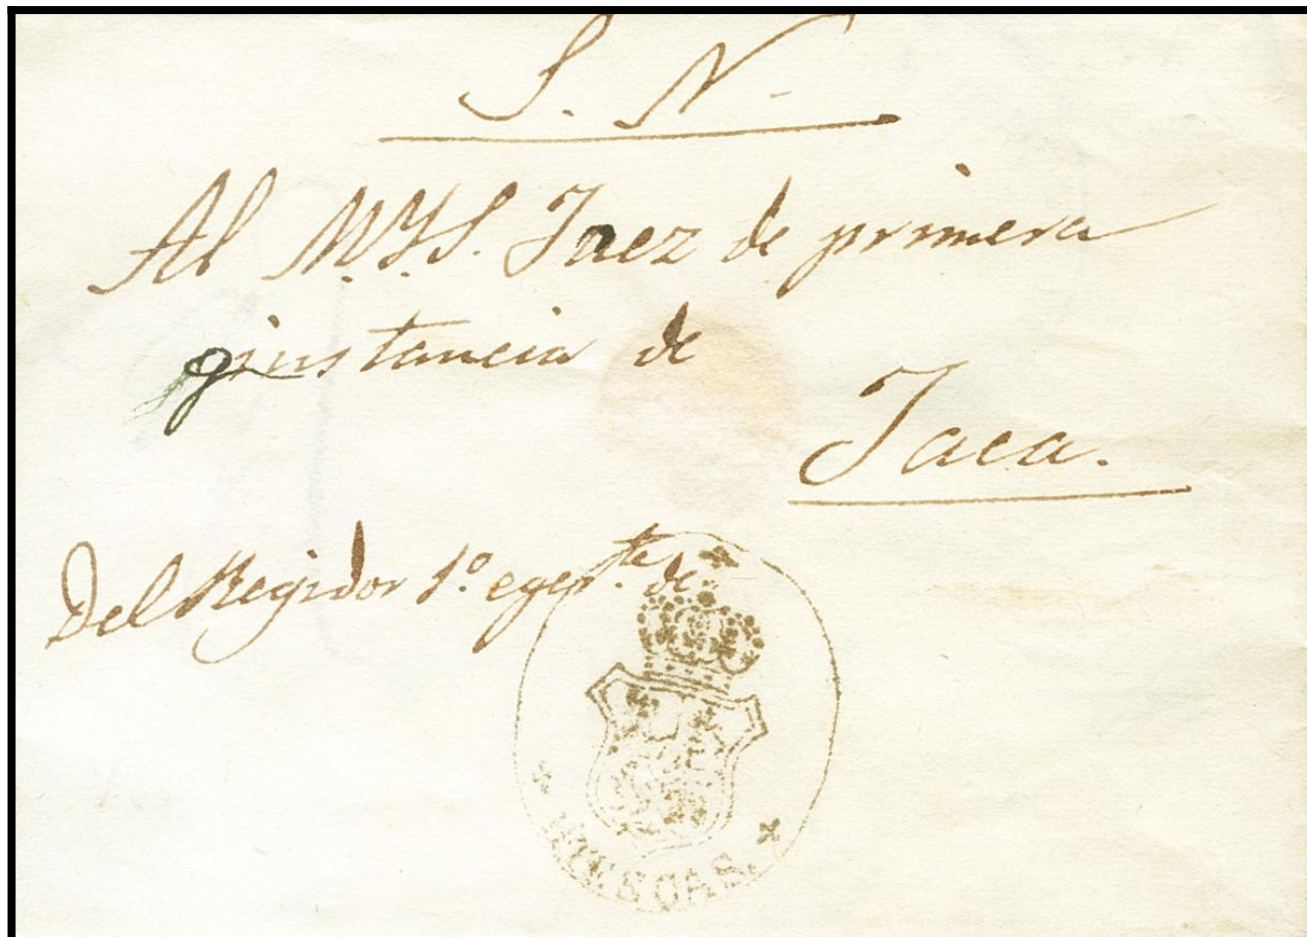 S. N.
Al M. Y. S. Juez de primera
ynstancia de
Jaca.
Del Regidor 1º egerte. de